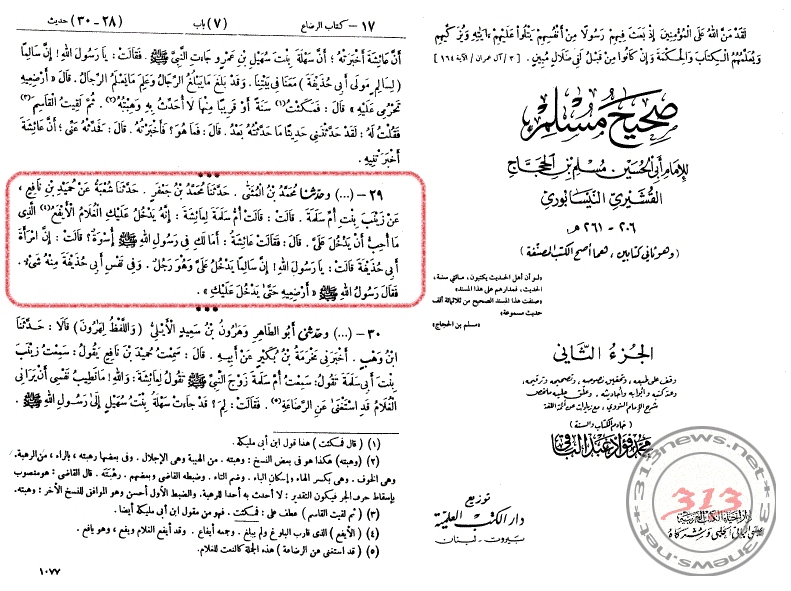 ١٧ – كتاب الرضاع
(٧) باب
(٢٨ – ٣٠) حديث
أَنَّ عَائِشَةَ أَخْبَرَتْهُ ؛ أَنَّ سَهْلَةَ بِنْتَ سُهَيْلِ بْنِ عَمْرٍو جَاءَتِ النَّبِيَّ ﷺ . فَقَالَتْ : يَا رَسُولَ اللهِ ! إِنَّ سَالِمًا
( لِسَالِمٍ مَوْلَى أَبِي حُذَيْفَةَ ) مَعَنَا فِي بَيْتِنَا . وَقَدْ بَلَغَ مَا يَبْلُغُ الرِّجَالُ وَعَلِمَ مَا يَعْلَمُ الرِّجَالُ . قَالَ « أَرْضِعِيهِ
تَحْرُمِي عَلَيْهِ » قَالَ : فَمَكَثْتُ(١) سَنَةً أَوْ قَرِيبًا مِنْهَا لَا أُحَدِّثُ بِهِ وَهِبْتُهُ(٢) . ثُمَّ لَقِيتُ الْقَاسِمَ(٣)
فَقُلْتُ لَهُ : لَقَدْ حَدَّثْتَنِي حَدِيثًا مَا حَدَّثْتُهُ بَعْدُ . قَالَ : فَمَا هُوَ ؟ فَأَخْبَرْتُهُ . قَالَ : فَحَدِّثْهُ عَنِّي ؛ أَنَّ عَائِشَةَ
أَخْبَرَتْنِيهِ .
***
٢٩ – (...) وحَدَّثَنَا مُحَمَّدُ بْنُ الْمُثَنَّى . حَدَّثَنَا مُحَمَّدُ بْنُ جَعْفَرٍ . حَدَّثَنَا شُعْبَةُ عَنْ حُمَيْدِ بْنِ نَافِعٍ ،
عَنْ زَيْنَبَ بِنْتِ أُمِّ سَلَمَةَ . قَالَتْ : قَالَتْ أُمُّ سَلَمَةَ لِعَائِشَةَ : إِنَّهُ يَدْخُلُ عَلَيْكِ الْغُلَامُ الْأَيْفَعُ(٤) الَّذِي
مَا أُحِبُّ أَنْ يَدْخُلَ عَلَيَّ . قَالَ : فَقَالَتْ عَائِشَةُ : أَمَا لَكِ فِي رَسُولِ اللهِ ﷺ أُسْوَةٌ ؟ قَالَتْ : إِنَّ امْرَأَةَ
أَبِي حُذَيْفَةَ قَالَتْ : يَا رَسُولَ اللهِ ! إِنَّ سَالِمًا يَدْخُلُ عَلَيَّ وَهُوَ رَجُلٌ . وَفِي نَفْسِ أَبِي حُذَيْفَةَ مِنْهُ شَيْءٌ .
فَقَالَ رَسُولُ اللهِ ﷺ « أَرْضِعِيهِ حَتَّى يَدْخُلَ عَلَيْكِ » .
***
٣٠ – (...) وحَدَّثَنِي أَبُو الطَّاهِرِ وَهَرُونُ بْنُ سَعِيدٍ الْأَيْلِيُّ ( وَاللَّفْظُ لِهَرُونَ ) قَالَا : حَدَّثَنَا
ابْنُ وَهْبٍ . أَخْبَرَنِي مَخْرَمَةُ بْنُ بُكَيْرٍ عَنْ أَبِيهِ . قَالَ : سَمِعْتُ حُمَيْدَ بْنَ نَافِعٍ يَقُولُ : سَمِعْتُ زَيْنَبَ
بِنْتَ أَبِي سَلَمَةَ تَقُولُ : سَمِعْتُ أُمَّ سَلَمَةَ زَوْجَ النَّبِيِّ ﷺ تَقُولُ لِعَائِشَةَ : وَاللهِ ! مَا تَطِيبُ نَفْسِي أَنْ يَرَانِي
الْغُلَامُ قَدِ اسْتَغْنَى عَنِ الرَّضَاعَةِ(٥) . فَقَالَتْ : لِمَ ؟ قَدْ جَاءَتْ سَهْلَةُ بِنْتُ سُهَيْلٍ إِلَى رَسُولِ اللهِ ﷺ .
(١) ( قال فمكثت ) هذا قول ابن أبي مليكة .
(٢) ( وهبته ) هكذا هو في بعض النسخ : وهبته . من الهيبة وهي الإجلال . وفي بعضها رهبته ، بالراء ، من الرهبة .
وهي الخوف . وهي بكسر الهاء وإسكان الباء . وضم التاء . وضبطه القاضي وبعضهم . رَهْبَتَه . قال القاضي : هو منصوب
بإسقاط حرف الجر فيكون التقدير : لا أحدث به أحدا للرهبة . والضبط الأول أحسن وهو الموافق للنسخ الأخر : وهبته .
(٣) ( ثم لقيت القاسم ) عطف على : فمكثت . فهو من مقول ابن أبي مليكة أيضا .
(٤) ( الأيفع ) الذي قارب البلوغ ولم يبلغ . وجمعه أيفاع . وقد أيفع الغلام ويفع ، وهو يافع .
(٥) ( قد استغنى عن الرضاعة ) هذه الجملة كالنعت للغلام .
١٠٧٧
لَقَدْ مَنَّ اللهُ عَلَى الْمُؤْمِنِينَ إِذْ بَعَثَ فِيهِمْ رَسُولًا مِنْ أَنْفُسِهِمْ يَتْلُوا عَلَيْهِمْ ءَايَاتِهِ وَيُزَكِّيهِمْ
وَيُعَلِّمُهُمُ الْكِتَابَ وَالْحِكْمَةَ وَإِنْ كَانُوا مِنْ قَبْلُ لَفِي ضَلَالٍ مُبِينٍ . [ ٣ / آل عمران / الآية ١٦٤ ]
صحيح مسلم
للإمام أبي الحسين مسلم بن الحجاج
القشيري النيسابوري
٢٠٦ – ٢٦١ هـ
( وهو ثاني كتابين ، هما أصح الكتب المصنفة )
« لو أن أهل الحديث يكتبون ، مائتي سنة ،
الحديث ، فمدارهم على هذا المسند »
« صنفت هذا المسند الصحيح من ثلاثمائة ألف
حديث مسموعة »
« مسلم بن الحجاج »
الجزء الثاني
وقف على طبعه ، وتحقيق نصوصه ، وتصحيحه وترقيمه ،
وعد كتبه وأبوابه وأحاديثه ، وعلق عليه ملخص
شرح الإمام النووي ، مع زيادات عن أئمة اللغة
( خادم الكتاب والسنة )
محمد فؤاد عبد الباقي
توزيع
دار الكتب العلمية
بيروت – لبنان
دار إحياء الكتب العربية
عيسى البابي الحلبي وشركاه
313
*313news.net*313news.net